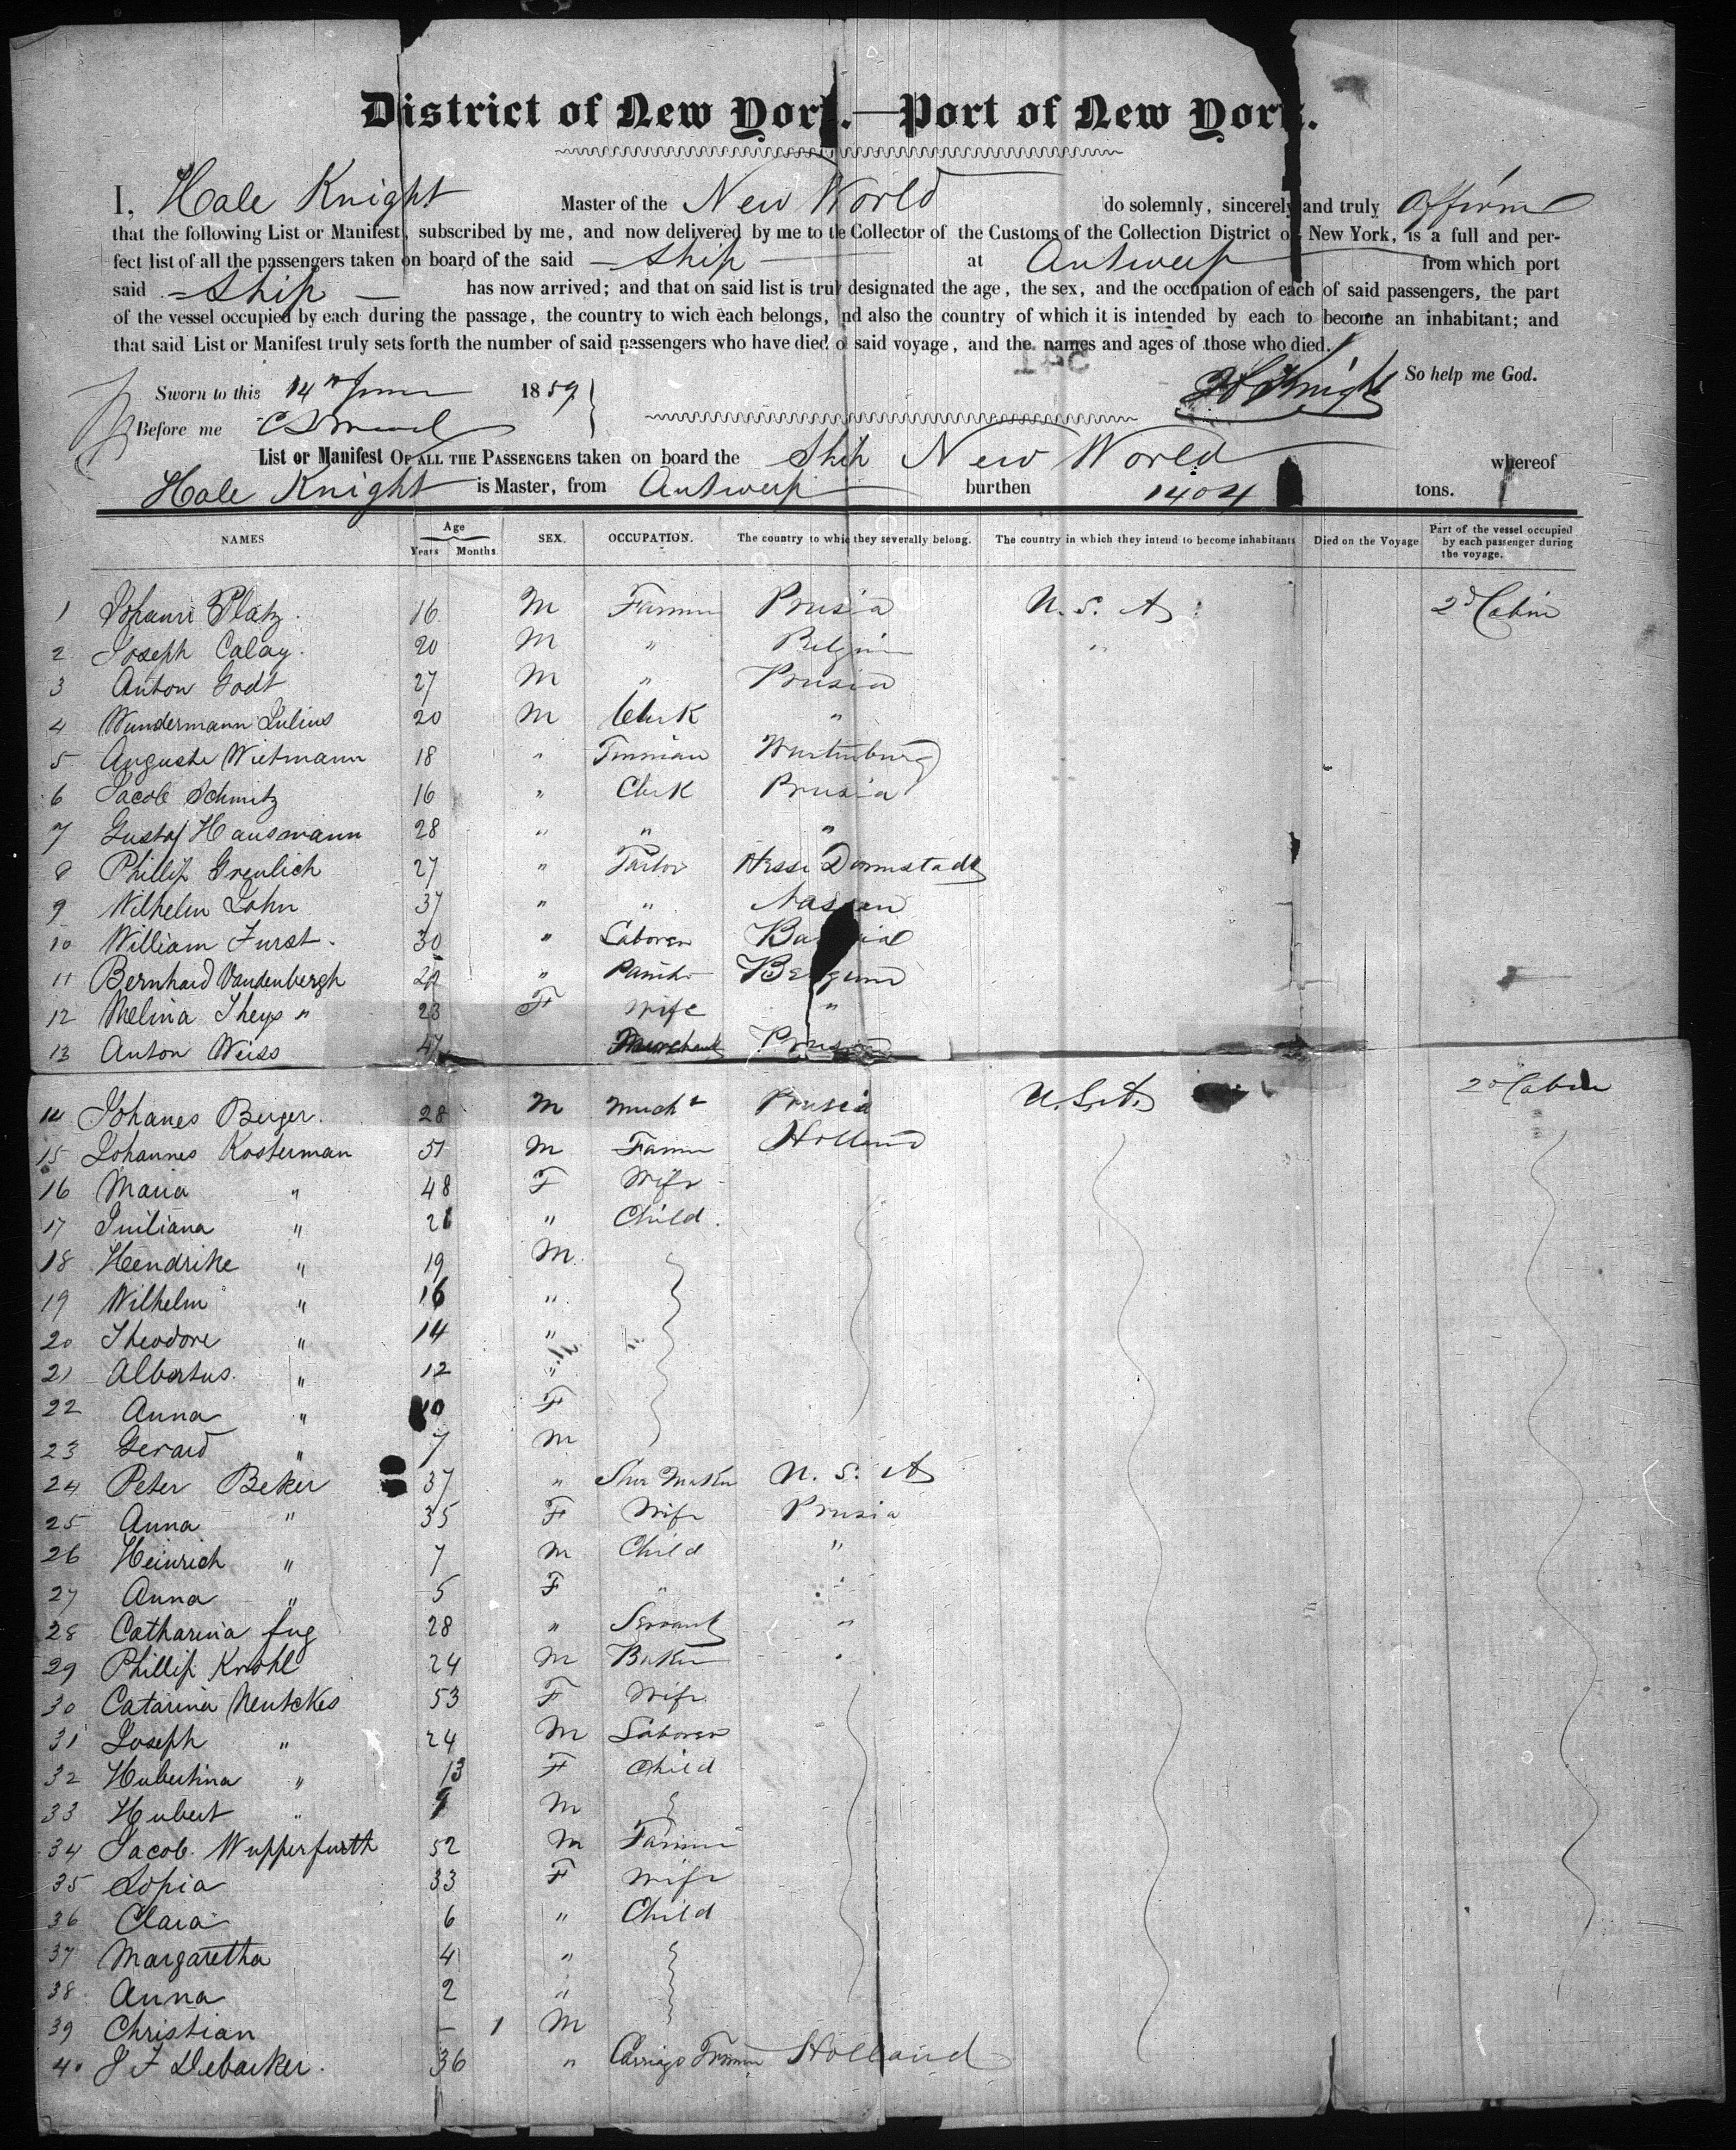 District of New York.—Port of New York.
I, Hale Knight Master of the New World do solemnly, sincerely and truly affirm
that the following List or Manifest, subscribed by me, and now delivered by me to the Collector of the Customs of the Collection District of New York, is a full and per-
fect list of all the passengers taken on board of the said Ship at Antwerp from which port
said Ship has now arrived; and that on said list is truly designated the age, the sex, and the occupation of each of said passengers, the part
of the vessel occupied by each during the passage, the country to wich each belongs, and also the country of which it is intended by each to become an inhabitant; and
that said List or Manifest truly sets forth the number of said passengers who have died o said voyage, and the names and ages of those who died.
So help me God.
H Knight
Sworn to this 14th June 1859
Before me
List or Manifest OF ALL THE PASSENGERS taken on board the Ship New World whereof
Hale Knight is Master, from Antwerp burthen 1404 tons.
NAMES Age Years Months SEX. OCCUPATION. The country to which they severally belong. The country in which they intend to become inhabitants Died on the Voyage Part of the vessel occupied by each passenger during the voyage.
1 Johann Platz. 16 M Farmer Prusia U. S. A 2d Cabin
2 Joseph Calay. 20 M " Belgium "
3 Anton Godt 27 M " Prusia
4 Wundermann Julius 20 M Clerk "
5 Auguste Wietmann 18 " Wurtemburg
6 Jacob Schmitz 16 " Clerk Prusia
7 Gustof Hausmann 28 " " "
8 Phillip Greulich 27 " Tailor Hesse Darmstadt
9 Wilhelm John 37 " " Nassau
10 William Furst. 30 " Laborer Bavaria
11 Bernhard Vandenbergh " Painter Belgium
12 Melina Theys " 23 F Wife "
13 Anton Weiss 47 Merchant Prusia
14 Johanes Berger. 28 M Mercht Prusia U.S.A. 2d Cabin
15 Johannes Kosterman 51 M Farmer Holland
16 Maria " 48 F Wife
17 Juiliana " 21 " Child.
18 Hendrike " 19 M
19 Wilhelm " 16 "
20 Theodore " 14 "
21 Albertus. " 12 "
22 Anna " 10 F
23 Gerard " 7 M
24 Peter Beker 37 " Shoe Maker U. S. A
25 Anna " 35 F Wife Prusia
26 Heinrich " 7 M Child "
27 Anna " 5 F " "
28 Catharina Jug 28 " Servant "
29 Phillip Krohl 24 M Baker "
30 Catarina Neutckes 53 F Wife
31 Joseph " 24 M Laborer
32 Hubertina " 13 F Child
33 Hubert " 9 M
34 Jacob. Wupperfurth 52 M Farmer
35 Sopia 33 F Wife
36 Clara 6 " Child
37 Margaretha 4 "
38 Anna 2 "
39 Christian - 1 M
40 J F Debacker. 36 " Carriage Trimer Holland